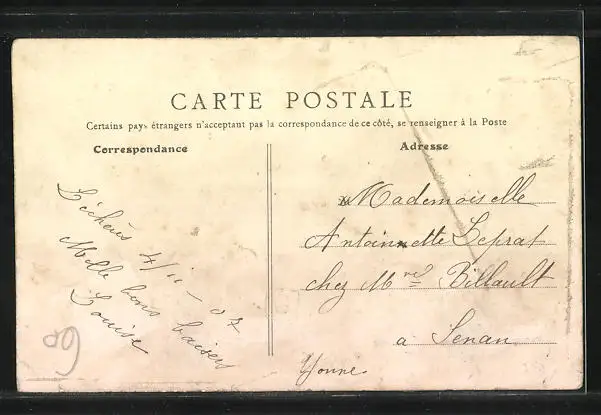 CARTE POSTALE
Certains pays étrangers n'acceptant pas la correspondance de ce côté, se renseigner à la Poste
Correspondance
4/11-07
Mille bons baisers
Louise
Adresse
Mademoiselle
Antoinette Leprat
chez Mme Billault
a Senan
Yonne
60